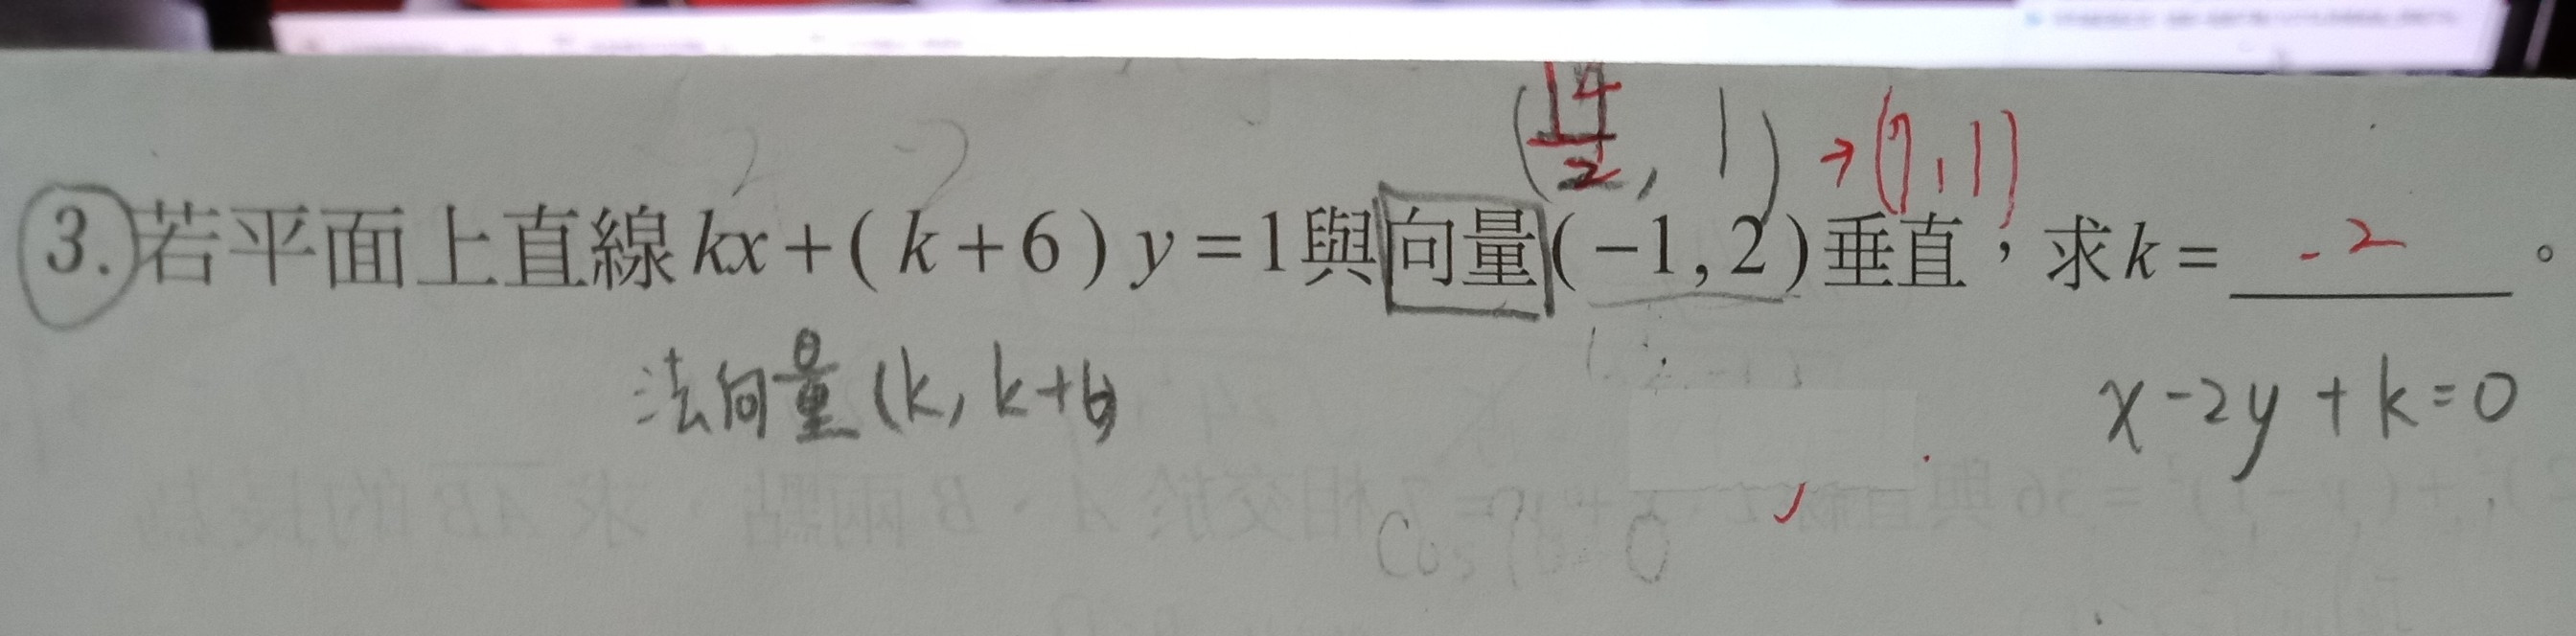 (14/2, 1) → (7, 1)
3. 若平面上直線 kx + ( k + 6 ) y = 1 與向量 ( −1 , 2 ) 垂直，求 k = -2 。
法向量 (k, k+6)
x - 2y + k = 0